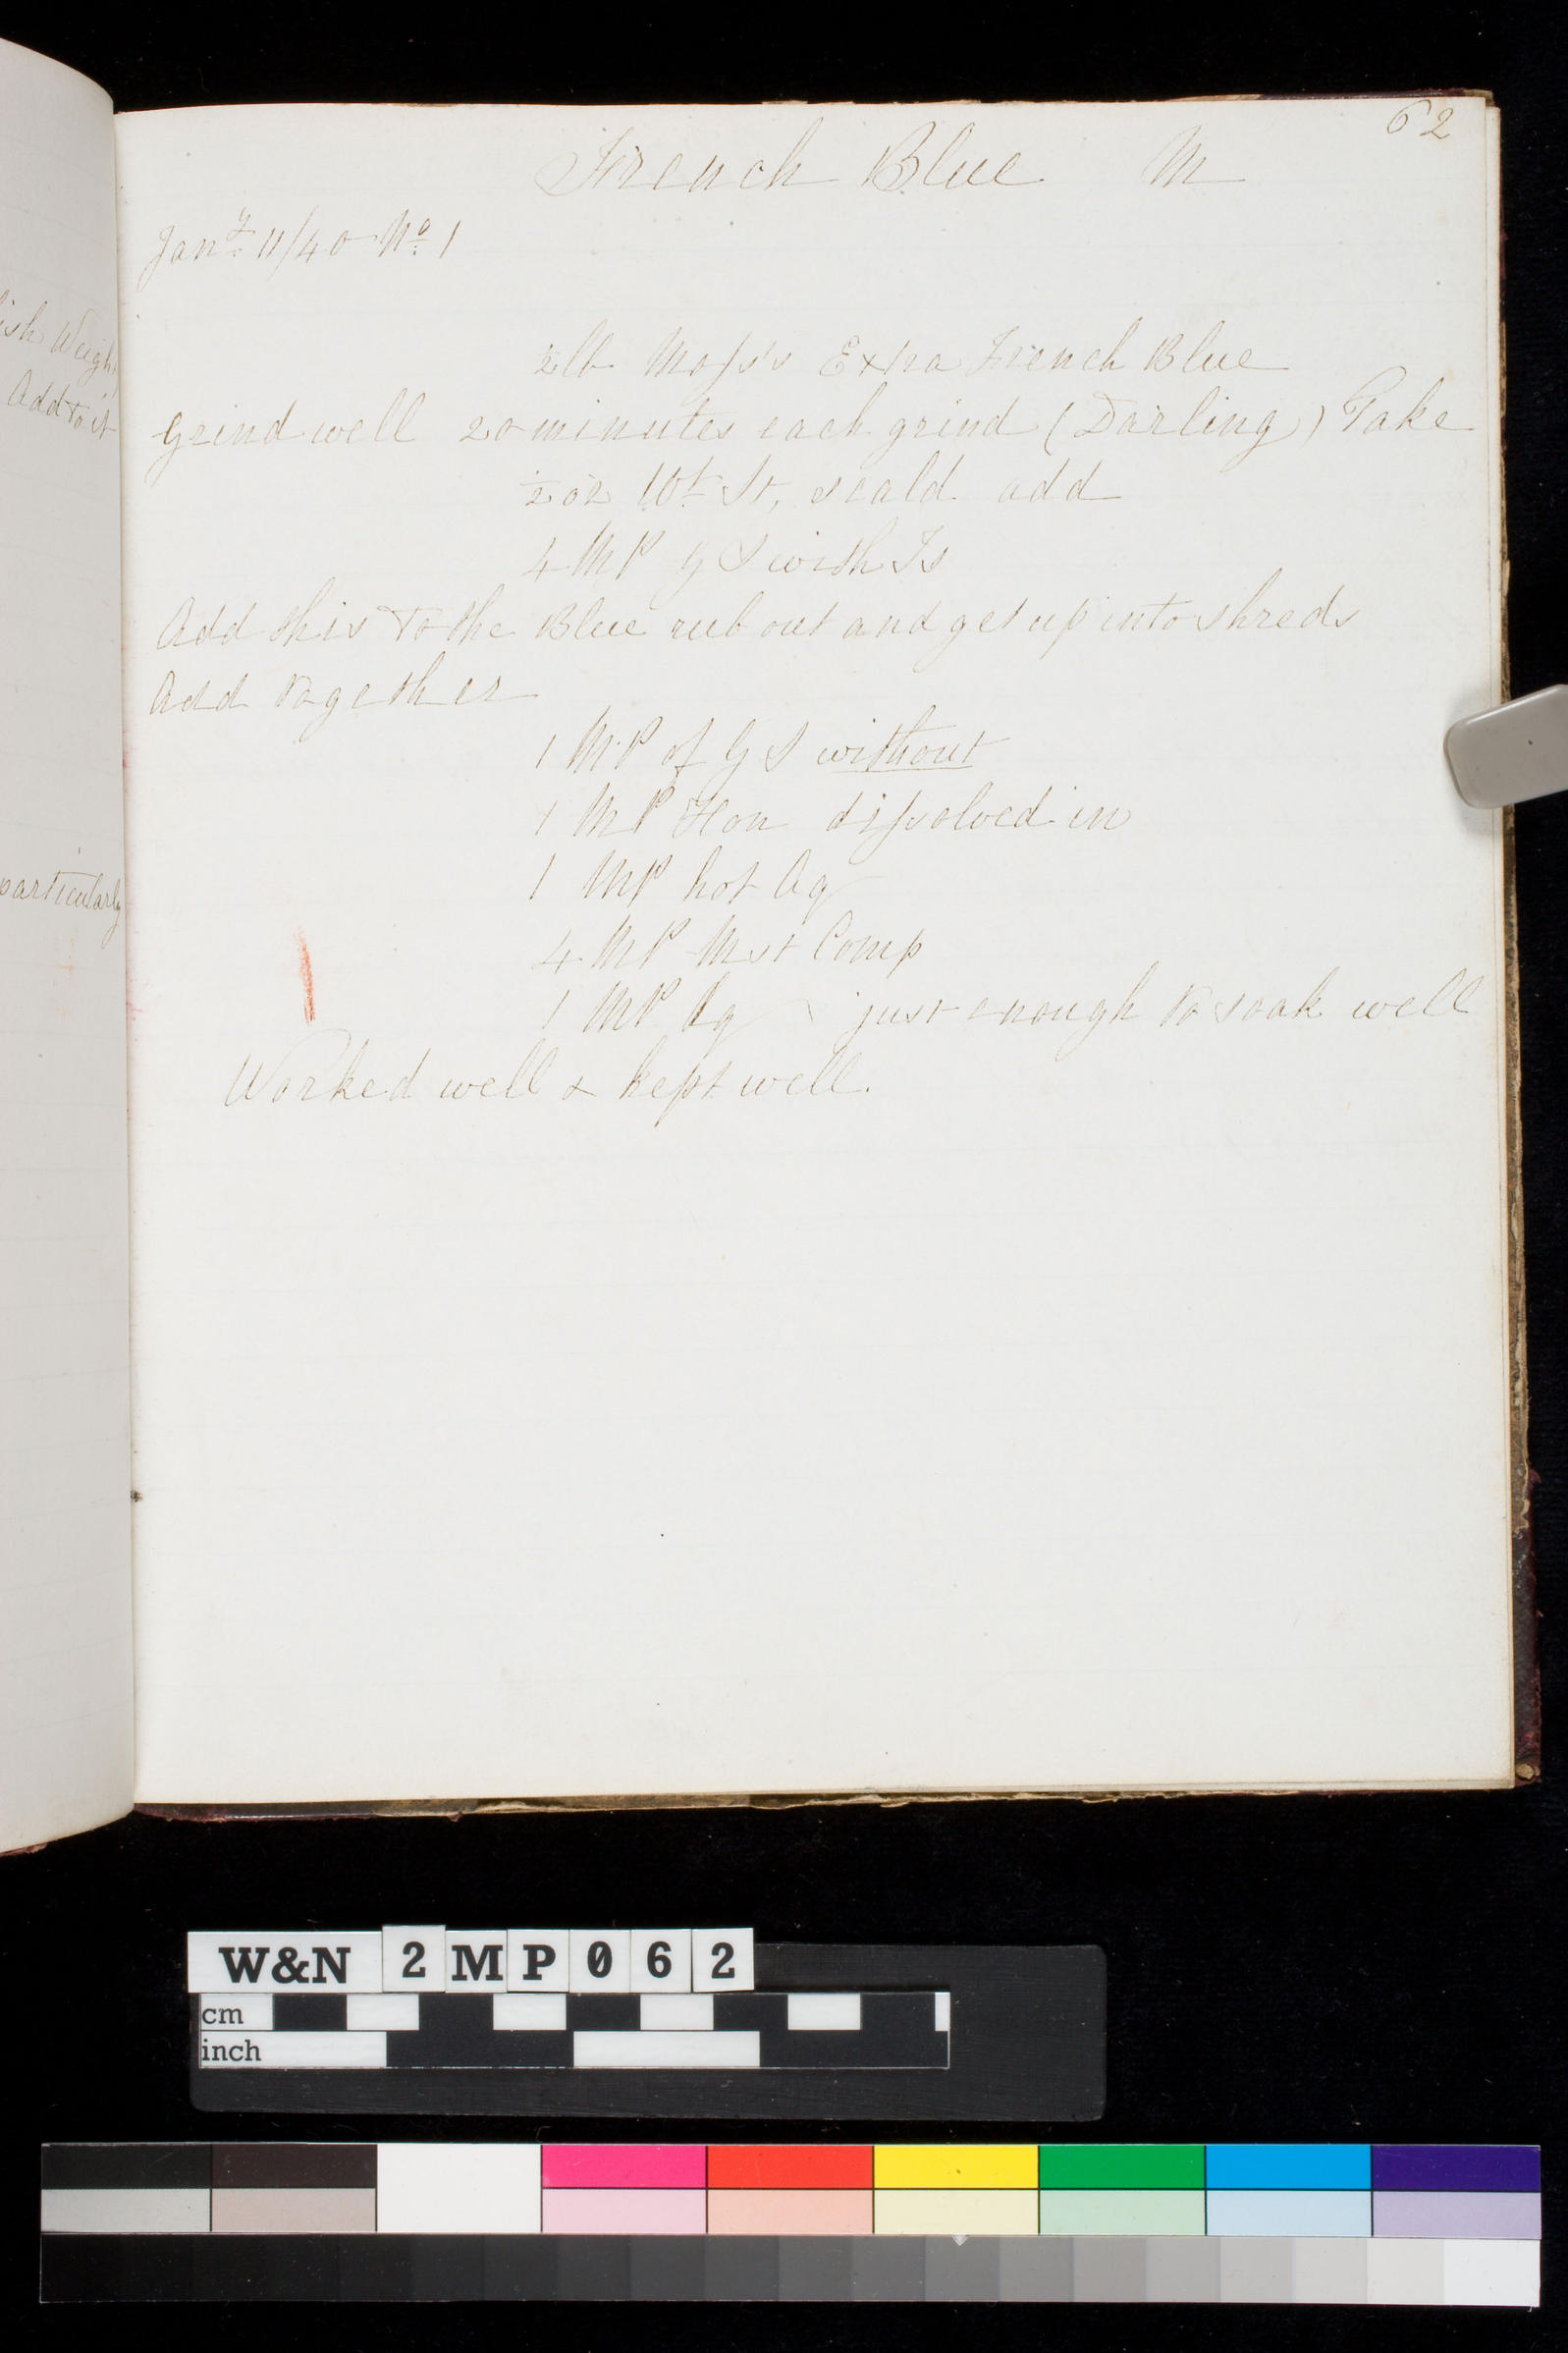 62
French Blue M
Jany 11/40 No 1
½ lb Moss's Extra French Blue
Grind well 20 minutes each grind (Darling) Take
½ oz Wt St, scald add
4 MP G S with Is
Add this to the Blue rub out and get up into shreds
Add together
1 MP of G S without
1 MP Hon dissolved in
1 MP hot Aq
4 MP Mst Comp
1 MP Aq just enough to soak well
Worked well & kept well.
ish Weight
Add to it
particularly
W&N 2MP062
cm
inch